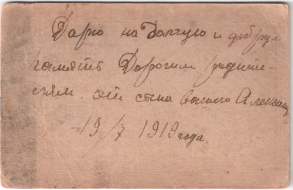 Дарю на Долгую и добрую
память Дорогим родите-
лям. от сына вашего Александ
19 3/7 1919 года.